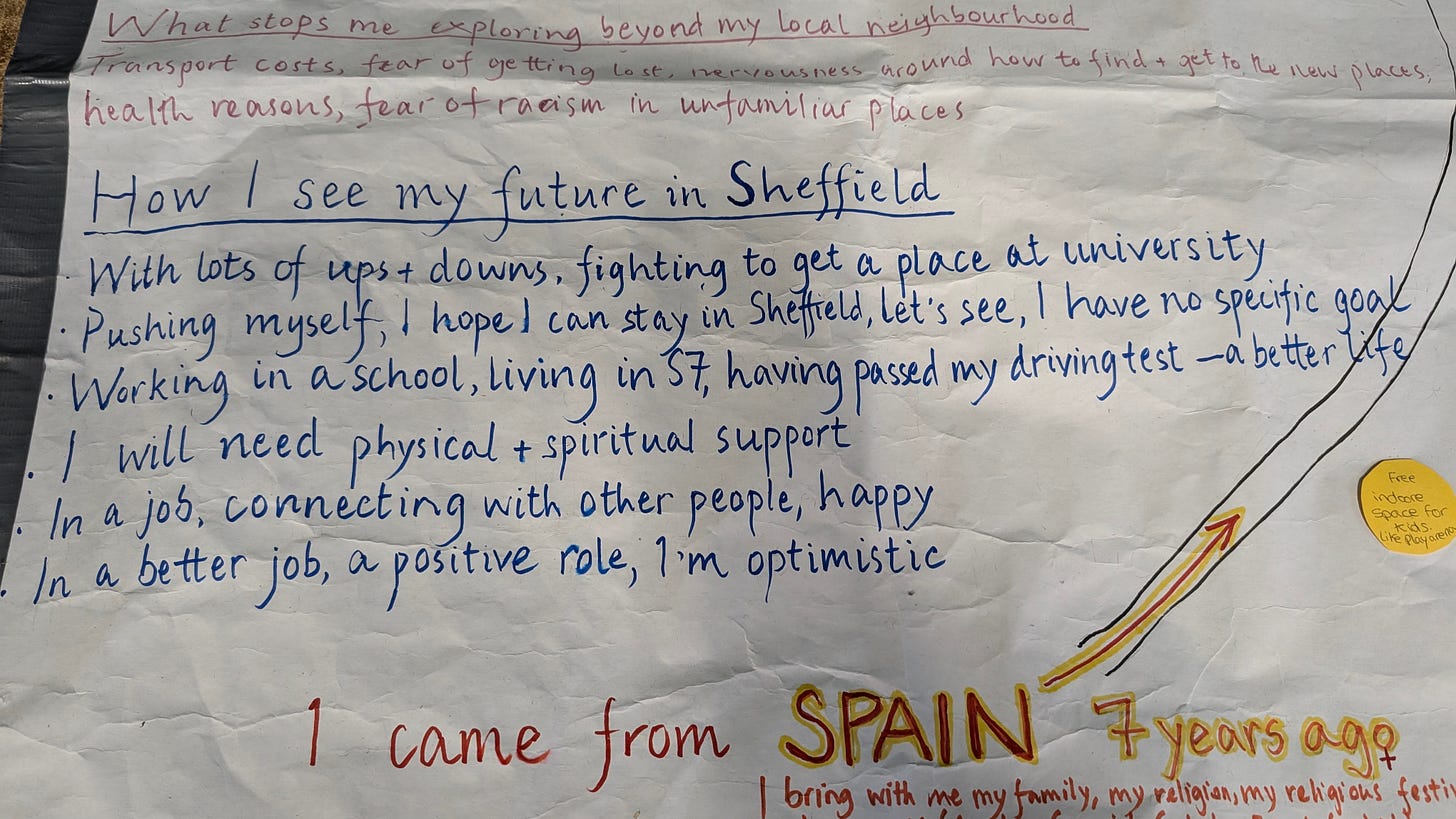 What stops me exploring beyond my local neighbourhood
Transport costs, fear of getting lost, nervousness around how to find + get to the new places,
health reasons, fear of racism in unfamiliar places
How I see my future in Sheffield
· With lots of ups + downs, fighting to get a place at university
· Pushing myself, I hope I can stay in Sheffield, let's see, I have no specific goal
· Working in a school, living in S7, having passed my driving test – a better life
· I will need physical + spiritual support
· In a job, connecting with other people, happy
· In a better job, a positive role, I'm optimistic
Free
indoore
space for
kids.
Like play arena
I came from SPAIN 7 years ago
I bring with me my family, my religion, my religious